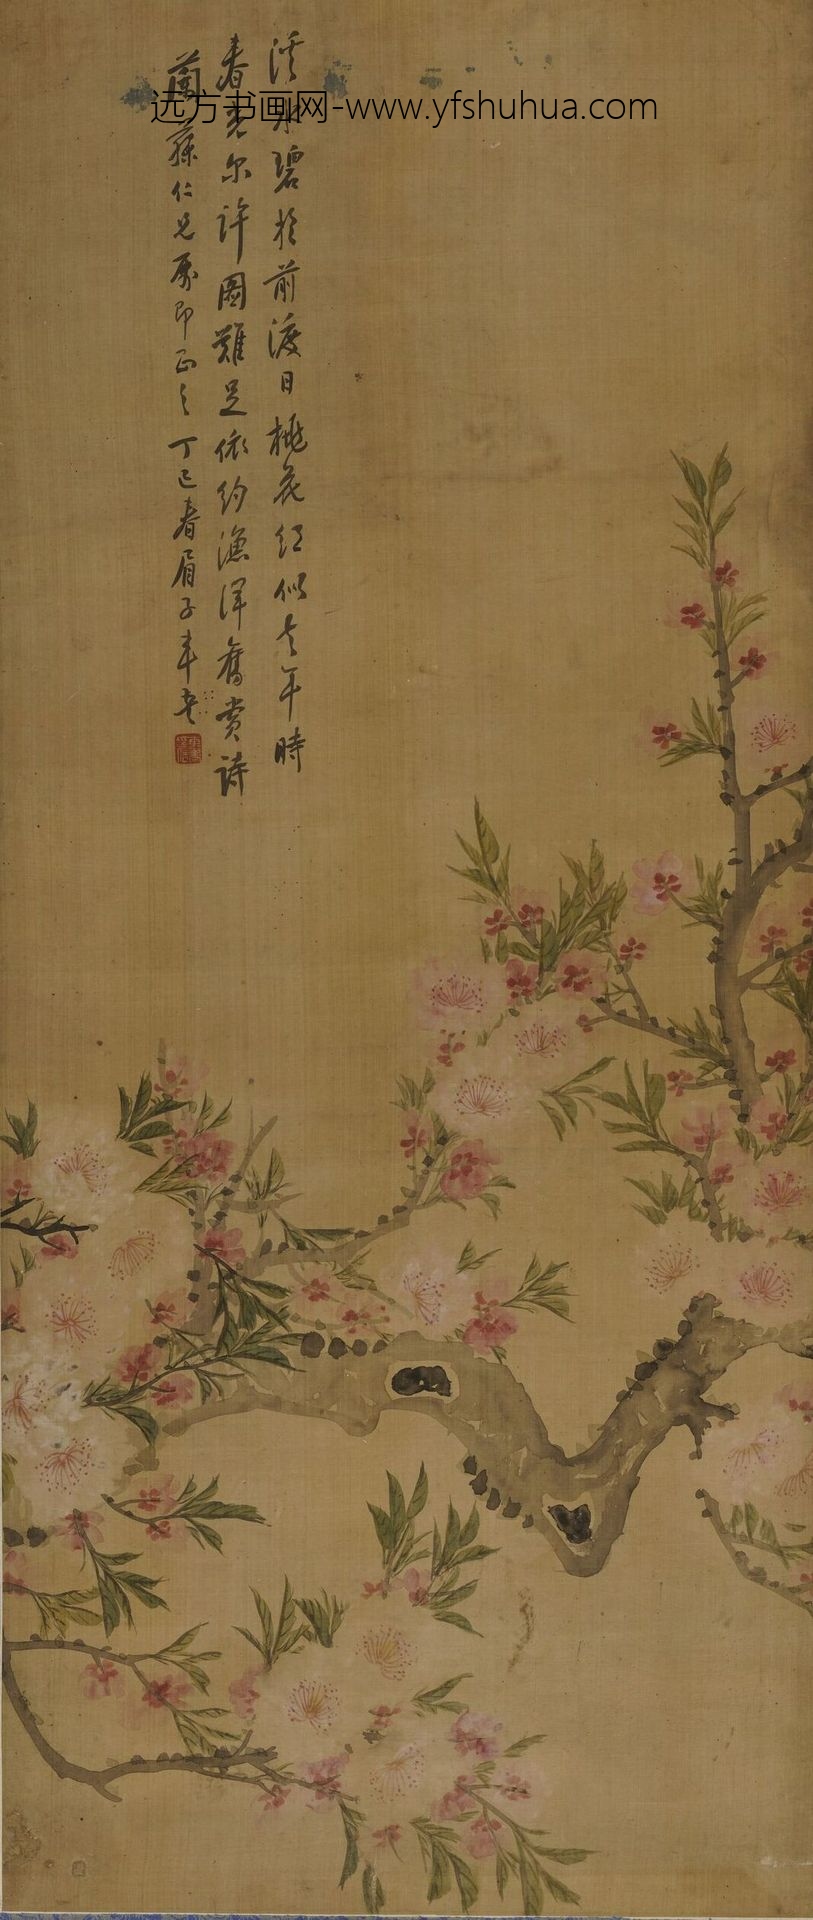 溪水碧於前渡日桃花红似去年時
春光尔许图難足依約漁洋舊賞詩
蘭蓀仁兄 即正之丁巳春眉子年
远方书画网-www.yfshuhua.com